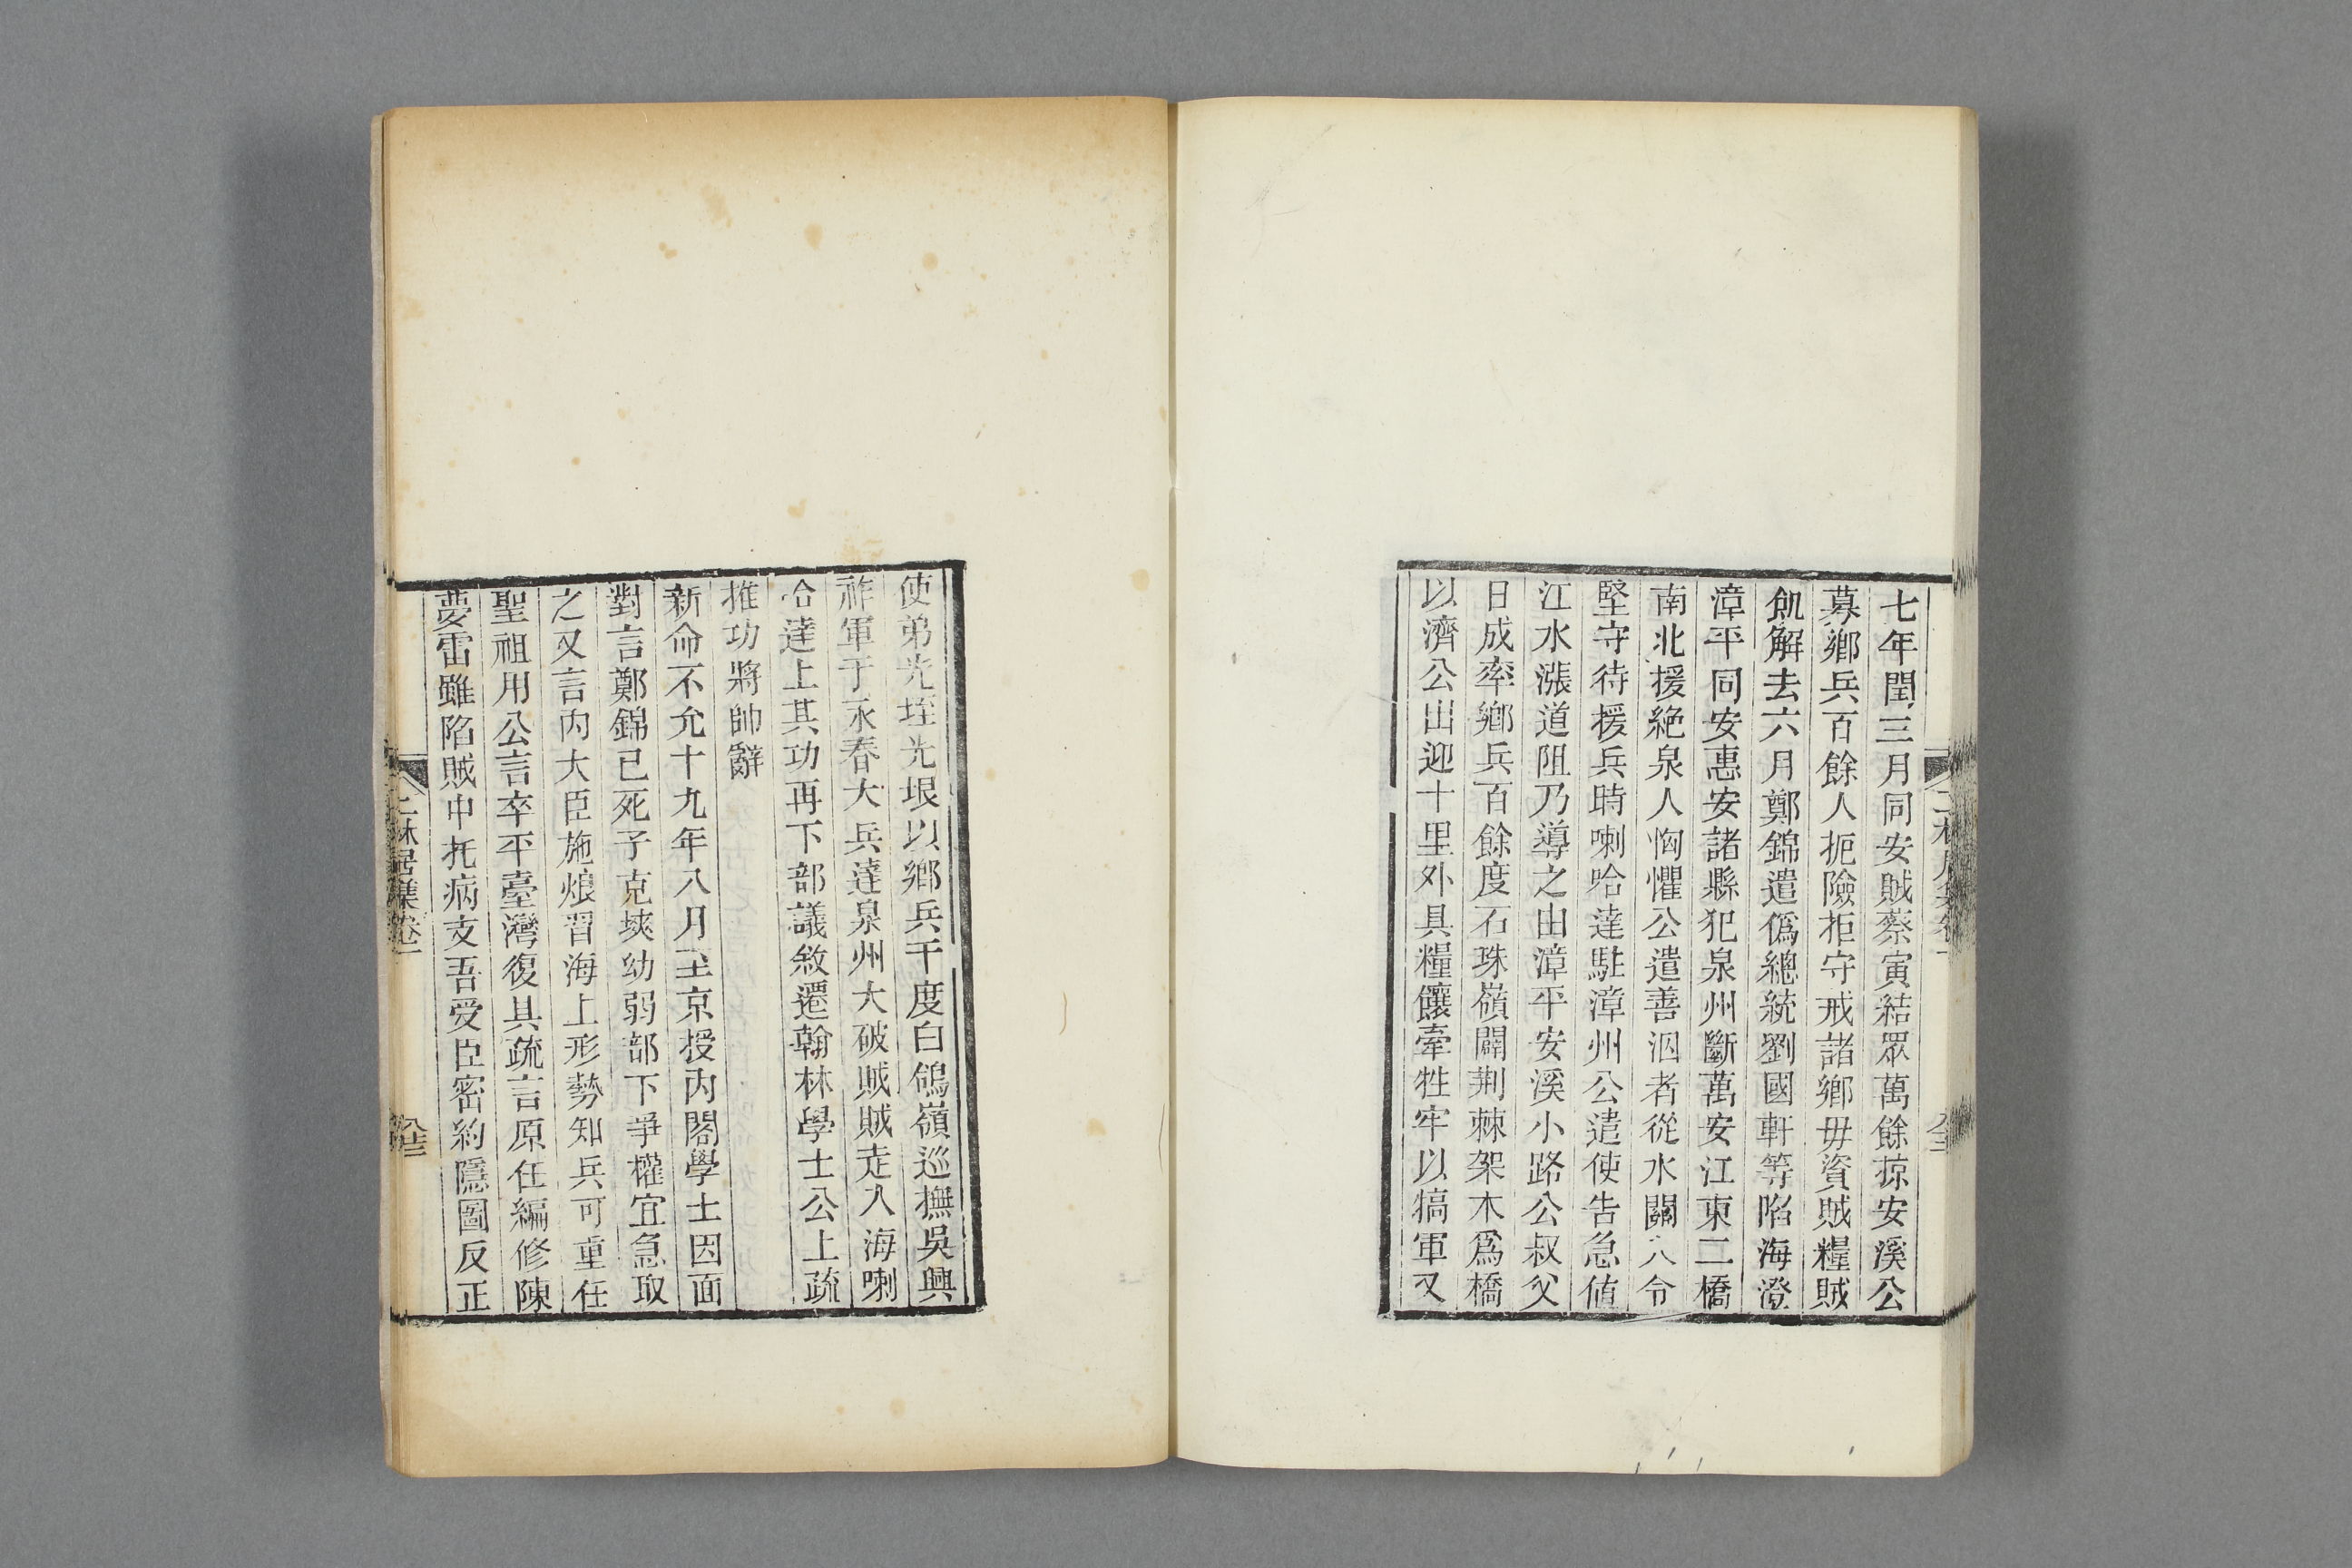 七年閏三月同安賊蔡寅結眾萬餘掠安溪公
募鄉兵百餘人扼險拒守戒諸鄉毋資賊糧賊
飢解去六月鄭錦遣僞總統劉國軒等陷海澄
漳平同安惠安諸縣犯泉州斷萬安江東二橋
南北援絕泉人恟懼公遣善泅者從水關入令
堅守待援兵時喇哈達駐漳州公遣使告急値
江水漲道阻乃導之由漳平安溪小路公叔父
日成率鄉兵百餘度石珠嶺闢荆棘架木爲橋
以濟公出迎十里外具糧饟牽牲牢以犒軍又
使弟光垤光垠以鄉兵千度白鴿嶺巡撫吳興
祚軍于永春大兵達泉州大破賊賊走入海喇
哈達上其功再下部議敘遷翰林學士公上疏
推功將帥辭
新命不允十九年八月至京授內閣學士因面
對言鄭錦已死子克塽幼弱部下爭權宜急取
之又言內大臣施烺習海上形勢知兵可重任
聖祖用公言卒平臺灣復具疏言原任編修陳
夢雷雖陷賊中托病支吾受臣密約隱圖反正
二林居集卷十